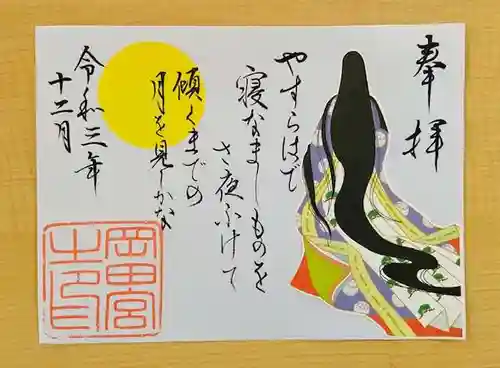 奉拝
やすらはで
寝なましものを
さ夜ふけて
傾くまでの
月を見しかな
令和三年
十二月
岡田宮